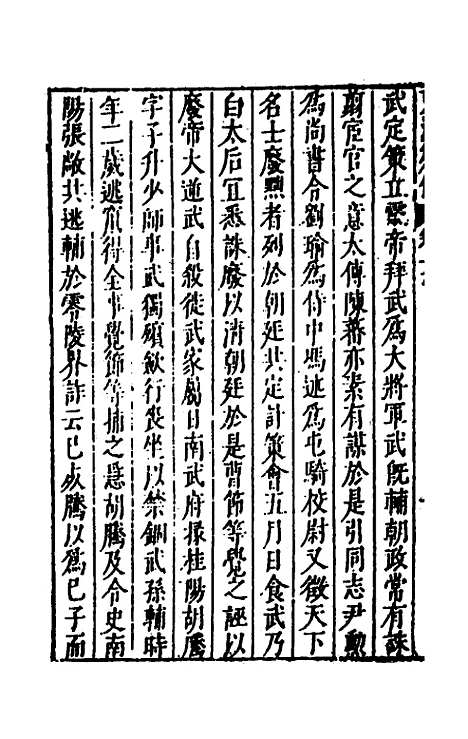 武定策立靈帝拜武爲大將軍武既輔朝政常有誅
翦宦官之意太傅陳蕃亦素有謀於是引同志尹勳
爲尚書令劉瑜爲侍中馮述爲屯騎校尉又徵天下
名士廢黜者列於朝廷共定計策會五月日食武乃
白太后宜悉誅廢以清朝廷於是曹節等覺之誣以
廢帝大逆武自殺徙武家屬日南武府掾桂陽胡騰
字子升少師事武獨殯歛行喪坐以禁錮武孫輔時
年二歲逃竄得全事覺節等捕之急胡騰及令史南
陽張敞共逃輔於零陵界詐云已死騰以爲已子而